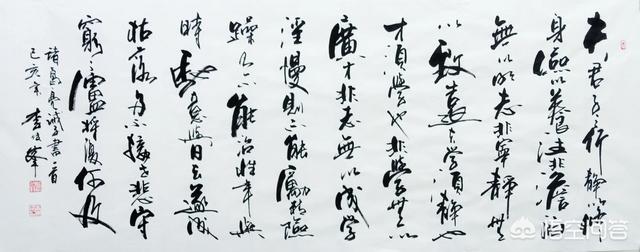 夫君子之行靜以修
身儉以養德非澹泊
無以明志非寧靜無
以致遠夫學須靜也
才須學也非學無以
廣才非志無以成學
淫慢則不能勵精險
躁則不能治性年與
時馳意與日去遂成
枯落多不接世悲守
窮廬將復何及
諸葛亮誡子書一首
己亥年 李
悟空问答